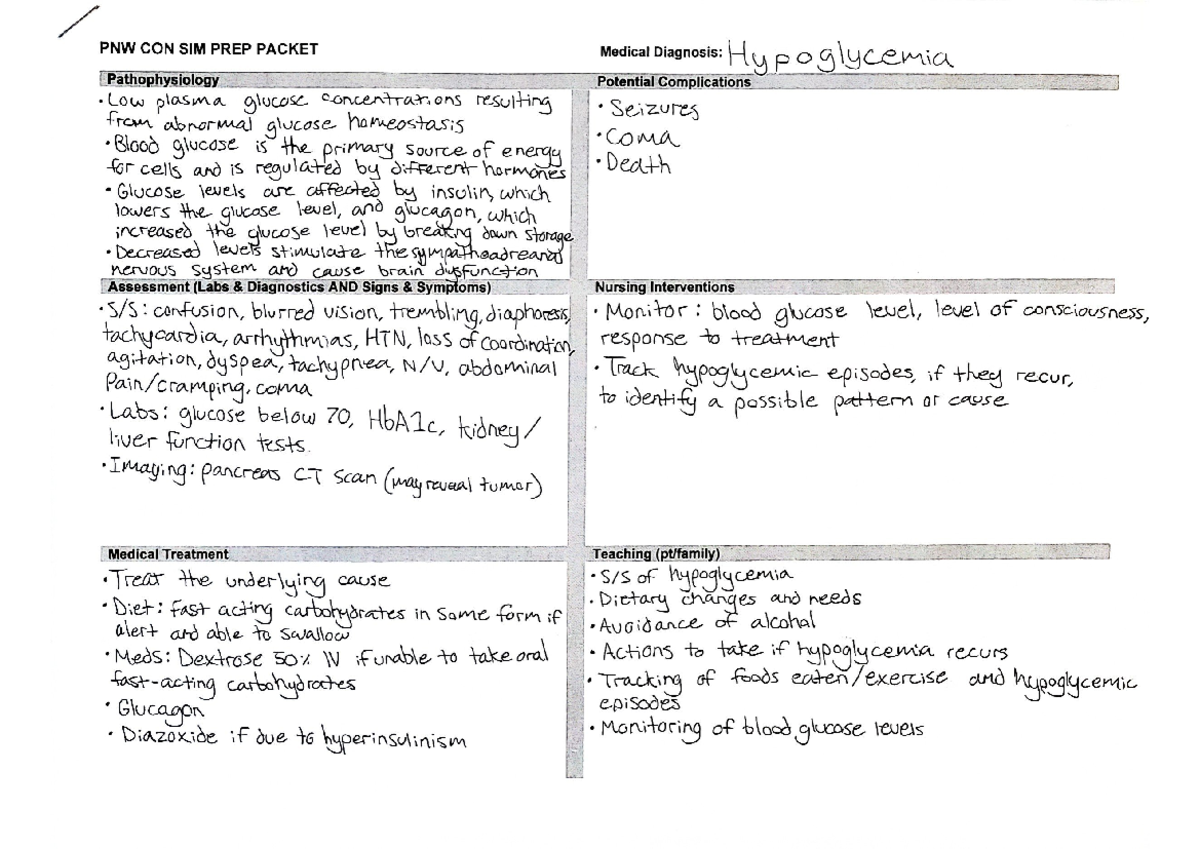 PNW CON SIM PREP PACKET
Medical Diagnosis: Hypoglycemia
Pathophysiology
• Low plasma glucose concentrations resulting
from abnormal glucose homeostasis
• Blood glucose is the primary source of energy
for cells and is regulated by different hormones
• Glucose levels are affected by insulin, which
lowers the glucose level, and glucagon, which
increased the glucose level by breaking down storage
• Decreased levels stimulate the sympathoadrenal
nervous system and cause brain dysfunction
Potential Complications
• Seizures
• Coma
• Death
Assessment (Labs & Diagnostics AND Signs & Symptoms)
• S/S: confusion, blurred vision, trembling, diaphoresis,
tachycardia, arrhythmias, HTN, loss of coordination,
agitation, dyspea, tachypnea, N/V, abdominal
Pain/cramping, coma
• Labs: glucose below 70, HbA1c, kidney/
liver function tests.
• Imaging: pancreas CT scan (may reveal tumor)
Nursing Interventions
• Monitor: blood glucose level, level of consciousness,
response to treatment
• Track hypoglycemic episodes, if they recur,
to identify a possible pattern or cause
Medical Treatment
• Treat the underlying cause
• Diet: fast acting carbohydrates in some form if
alert and able to swallow
• Meds: Dextrose 50% IV if unable to take oral
fast-acting carbohydrates
• Glucagon
• Diazoxide if due to hyperinsulinism
Teaching (pt/family)
• S/S of hypoglycemia
• Dietary changes and needs
• Avoidance of alcohol
• Actions to take if hypoglycemia recurs
• Tracking of foods eaten/exercise and hypoglycemic
episodes
• Monitoring of blood glucose levels